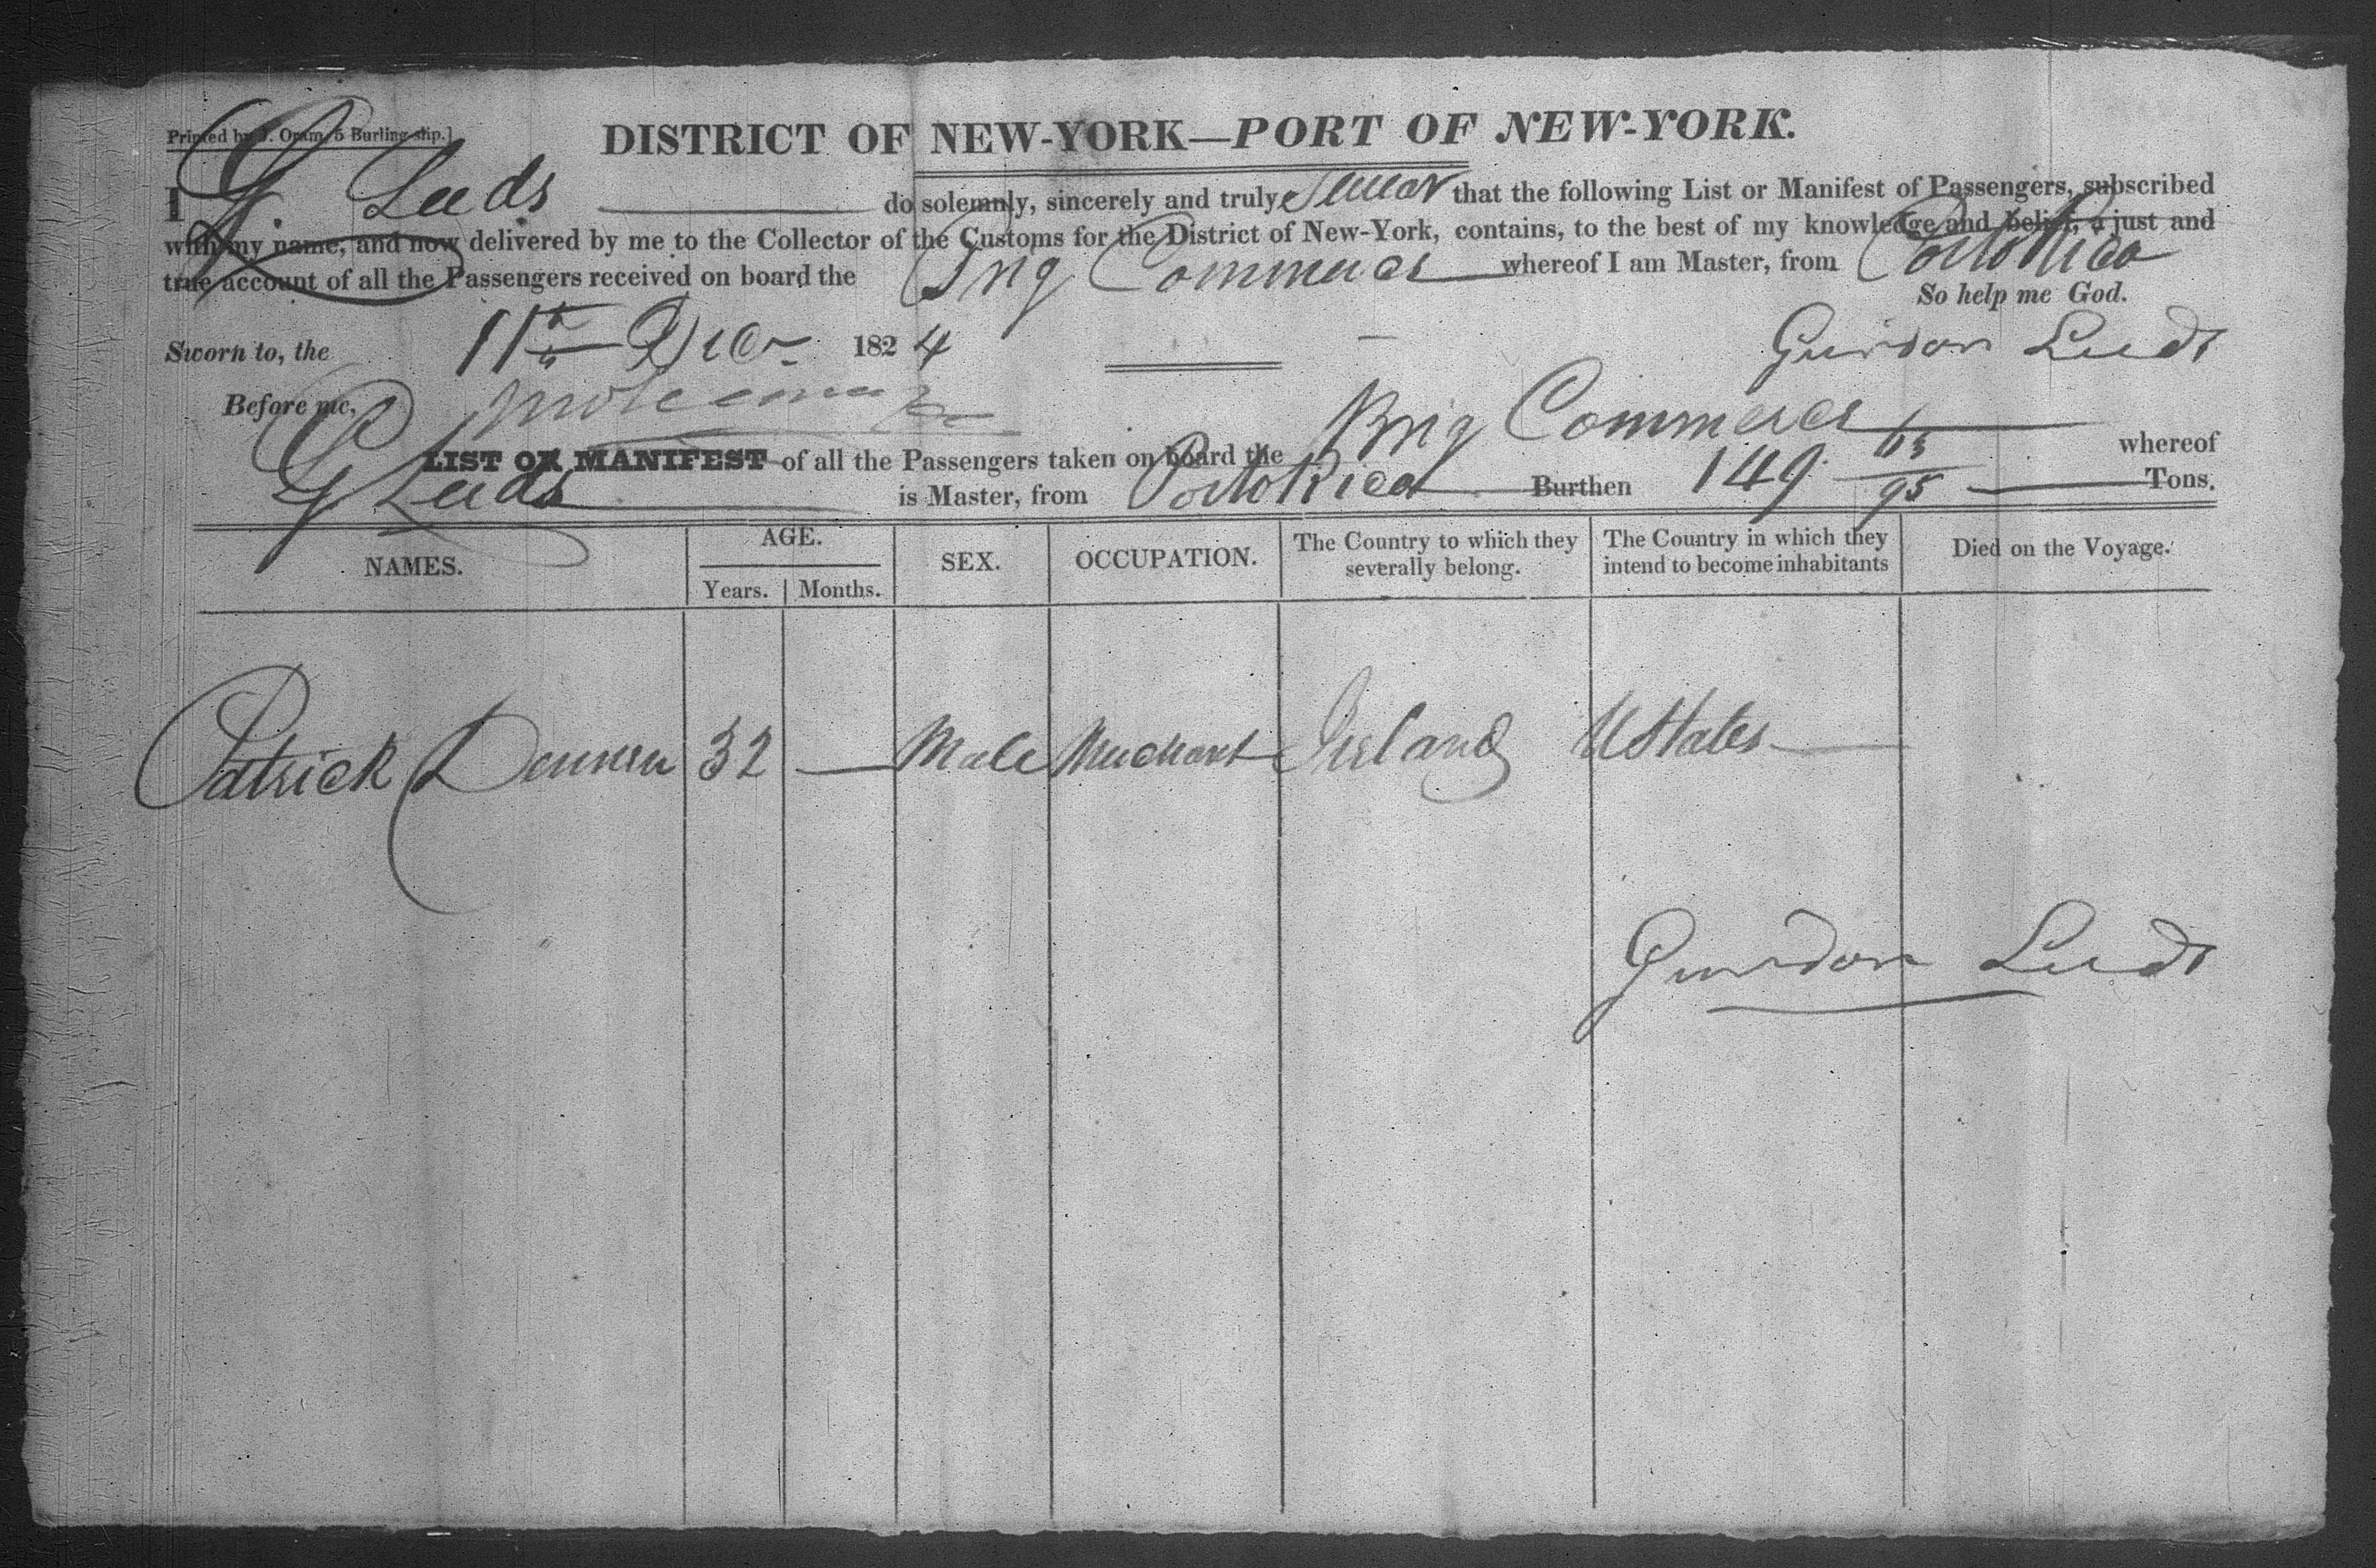 Printed by J. Oram, 5 Burling-slip.]
DISTRICT OF NEW-YORK—PORT OF NEW-YORK.
I G. Leeds do solemnly, sincerely and truly swear that the following List or Manifest of Passengers, subscribed
with my name, and now delivered by me to the Collector of the Customs for the District of New-York, contains, to the best of my knowledge and belief, a just and
true account of all the Passengers received on board the Brig Commerce whereof I am Master, from Porto Rico
So help me God.
Sworn to, the 11th Decr 1824 Gurdon Leeds
Before me,
LIST OR MANIFEST of all the Passengers taken on board the Brig Commerce whereof
G Leeds is Master, from Porto Rico Burthen 149 63/95 Tons.
NAMES. AGE. SEX. OCCUPATION. The Country to which they severally belong. The Country in which they intend to become inhabitants Died on the Voyage.
Years. Months.
Patrick 32 — Male Merchant Ireland U States
Gurdon Leeds